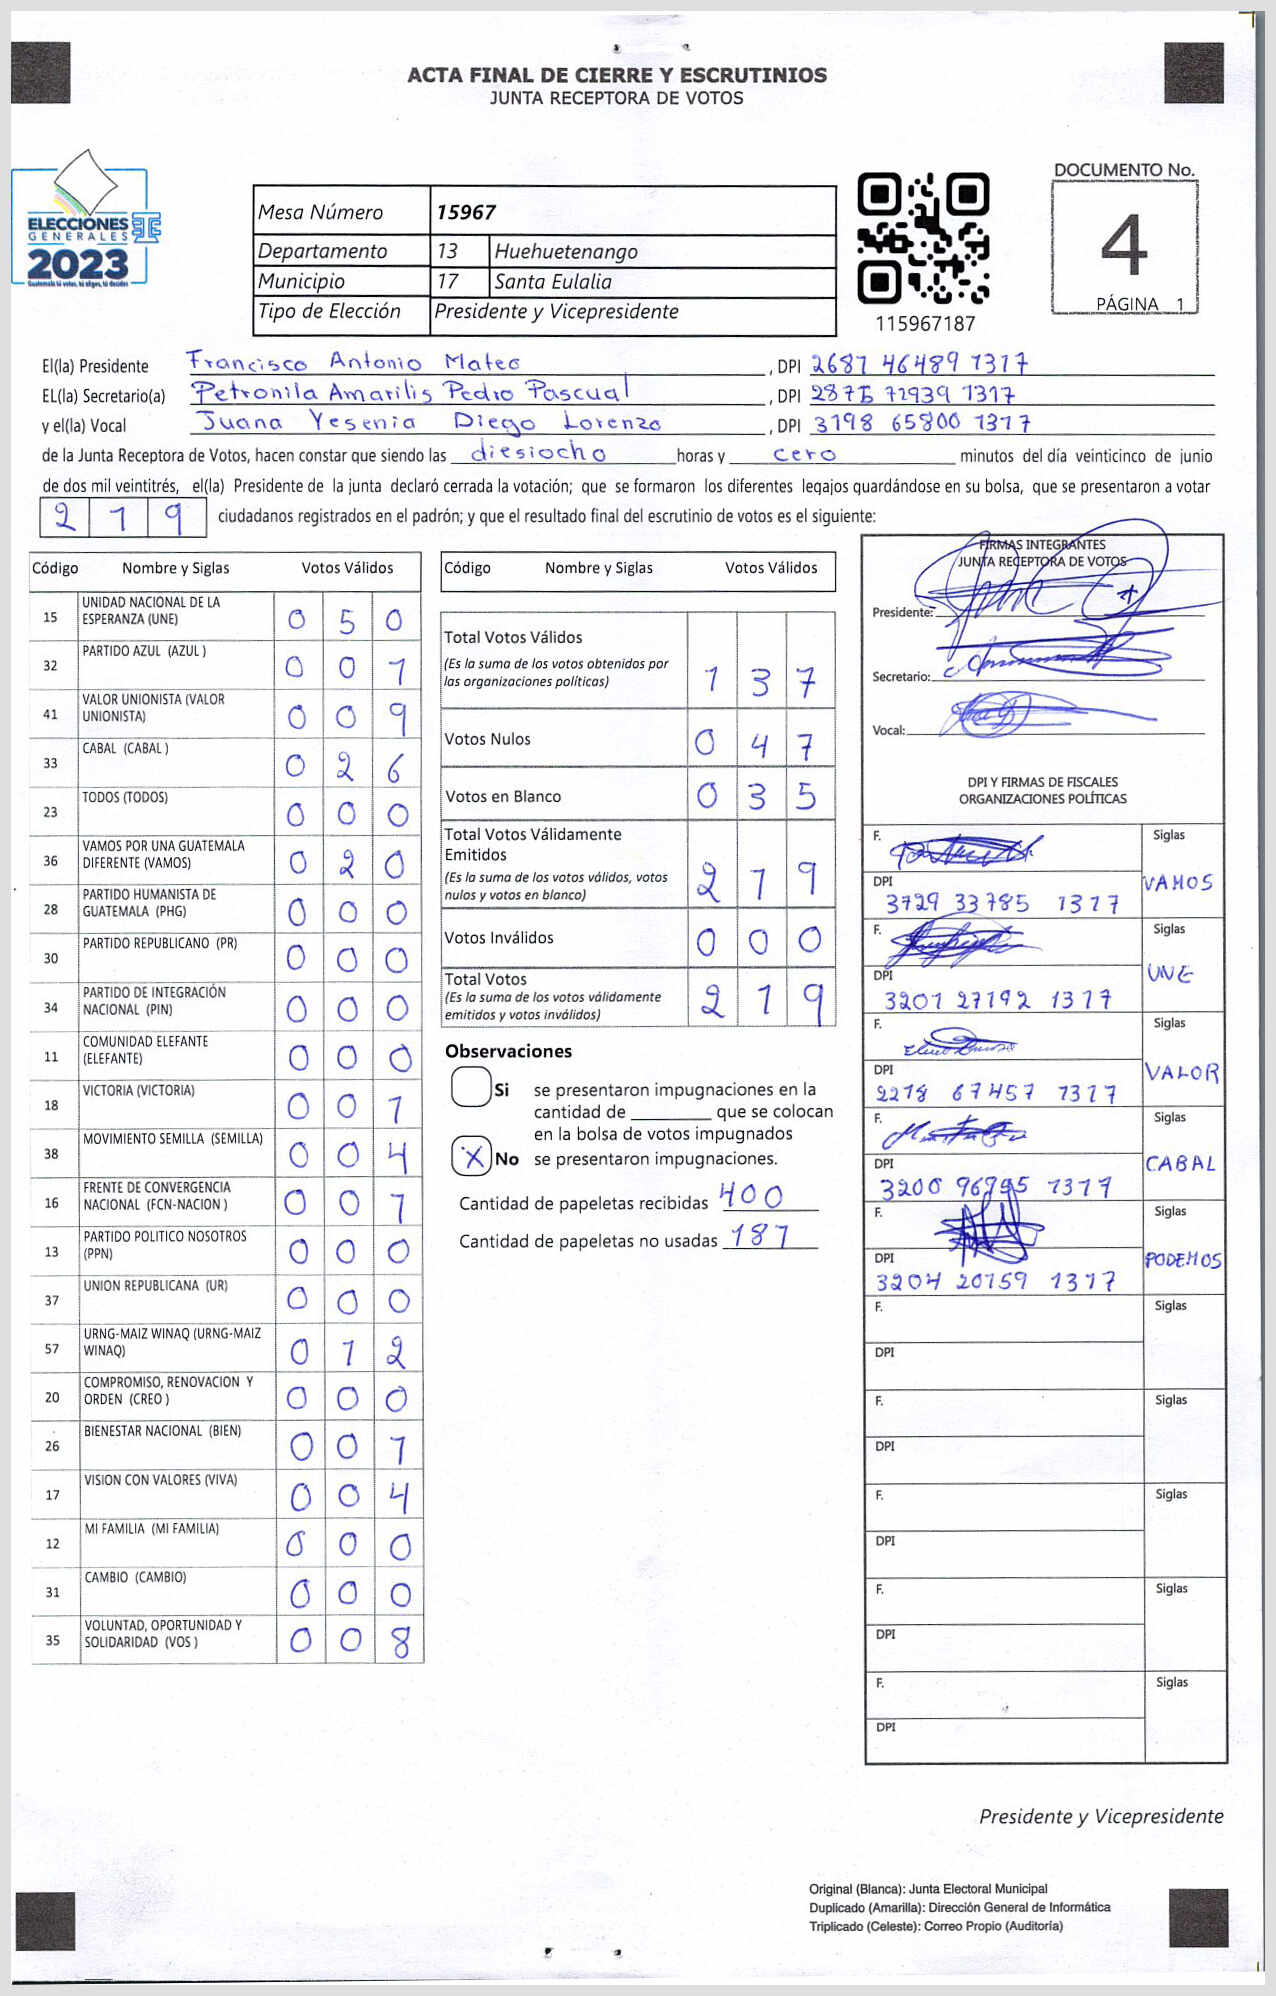 ACTA FINAL DE CIERRE Y ESCRUTINIOS
JUNTA RECEPTORA DE VOTOS
ELECCIONES
GENERALES
2023
Guatemala tú votas, tú eliges, tú decides
Mesa Número 15967
Departamento 13 Huehuetenango
Municipio 17 Santa Eulalia
Tipo de Elección Presidente y Vicepresidente
115967187
DOCUMENTO No.
4
PÁGINA 1
El(la) Presidente Francisco Antonio Mateo , DPI 2687 46489 1317
EL(la) Secretario(a) Petronila Amarilis Pedro Pascual , DPI 2875 72939 1317
y el(la) Vocal Juana Yesenia Diego Lorenzo , DPI 3198 65800 1317
de la Junta Receptora de Votos, hacen constar que siendo las diesiocho horas y cero minutos del día veinticinco de junio
de dos mil veintitrés, el(la) Presidente de la junta declaró cerrada la votación; que se formaron los diferentes legajos guardándose en su bolsa, que se presentaron a votar
219 ciudadanos registrados en el padrón; y que el resultado final del escrutinio de votos es el siguiente:
Código Nombre y Siglas Votos Válidos
15 UNIDAD NACIONAL DE LA ESPERANZA (UNE) 0 5 0
32 PARTIDO AZUL (AZUL ) 0 0 1
41 VALOR UNIONISTA (VALOR UNIONISTA) 0 0 9
33 CABAL (CABAL ) 0 2 6
23 TODOS (TODOS) 0 0 0
36 VAMOS POR UNA GUATEMALA DIFERENTE (VAMOS) 0 2 0
28 PARTIDO HUMANISTA DE GUATEMALA (PHG) 0 0 0
30 PARTIDO REPUBLICANO (PR) 0 0 0
34 PARTIDO DE INTEGRACIÓN NACIONAL (PIN) 0 0 0
11 COMUNIDAD ELEFANTE (ELEFANTE) 0 0 0
18 VICTORIA (VICTORIA) 0 0 1
38 MOVIMIENTO SEMILLA (SEMILLA) 0 0 4
16 FRENTE DE CONVERGENCIA NACIONAL (FCN-NACION ) 0 0 1
13 PARTIDO POLITICO NOSOTROS (PPN) 0 0 0
37 UNION REPUBLICANA (UR) 0 0 0
57 URNG-MAIZ WINAQ (URNG-MAIZ WINAQ) 0 1 2
20 COMPROMISO, RENOVACION Y ORDEN (CREO ) 0 0 0
26 BIENESTAR NACIONAL (BIEN) 0 0 1
17 VISION CON VALORES (VIVA) 0 0 4
12 MI FAMILIA (MI FAMILIA) 0 0 0
31 CAMBIO (CAMBIO) 0 0 0
35 VOLUNTAD, OPORTUNIDAD Y SOLIDARIDAD (VOS ) 0 0 8
Código Nombre y Siglas Votos Válidos
Total Votos Válidos
(Es la suma de los votos obtenidos por
las organizaciones políticas) 1 3 7
Votos Nulos 0 4 7
Votos en Blanco 0 3 5
Total Votos Válidamente
Emitidos
(Es la suma de los votos válidos, votos
nulos y votos en blanco) 2 1 9
Votos Inválidos 0 0 0
Total Votos
(Es la suma de los votos válidamente
emitidos y votos inválidos) 2 1 9
Observaciones
Si se presentaron impugnaciones en la
cantidad de ________ que se colocan
en la bolsa de votos impugnados
X No se presentaron impugnaciones.
Cantidad de papeletas recibidas 400
Cantidad de papeletas no usadas 187
FIRMAS INTEGRANTES
JUNTA RECEPTORA DE VOTOS
Presidente:
Secretario:
Vocal:
DPI Y FIRMAS DE FISCALES
ORGANIZACIONES POLÍTICAS
F. Siglas
DPI VAMOS
3729 33785 1317
F. Siglas
DPI UNE
3201 27192 1317
F. Siglas
DPI VALOR
2278 67457 1317
F. Siglas
DPI CABAL
3200 96795 1317
F. Siglas
DPI PODEMOS
3204 20159 1317
F. Siglas
DPI
F. Siglas
DPI
F. Siglas
DPI
F. Siglas
DPI
F. Siglas
DPI
Presidente y Vicepresidente
Original (Blanca): Junta Electoral Municipal
Duplicado (Amarilla): Dirección General de Informática
Triplicado (Celeste): Correo Propio (Auditoría)